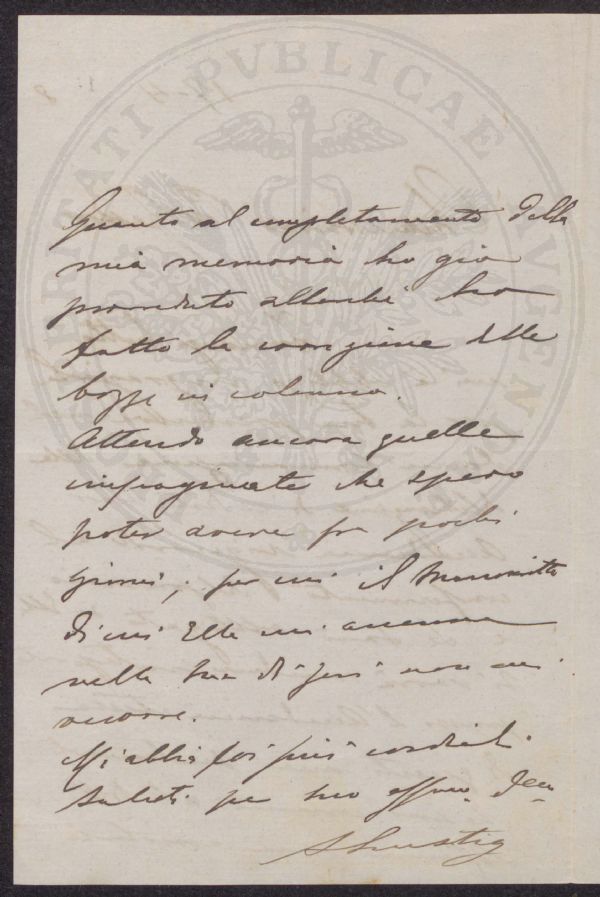 PVBLICAE
Quanto al completamento della
mia memoria ho già
provveduto allorchè ho
fatto la correzione delle
bozze in colonna.
Attendo ancora quelle
impaginate che spero
poter avere fra pochi
giorni; per cui il manoscritto
di cui Ella mi accenna
nella sua di jeri non mi
occorre.
Mi abbia coi più cordiali
saluti pe suo affmo. Dev
A Lustig